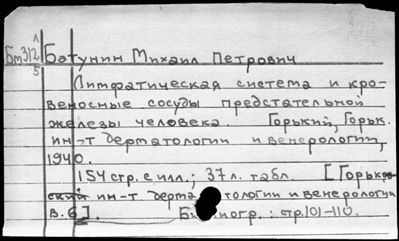 Бт312 Л/5 Батунин Михаил Петрович
Лимфатическая система и кро-
веносные сосуды предстательной
железы человека. Горький, Горьк.
ин-т дерматологии и венерологии,
1940.
154 стр. с илл.; 37 л. табл. [Горьков-
ский ин-т дерматологии и венерологии
В. 6]. Библиогр.: стр. 101-110.